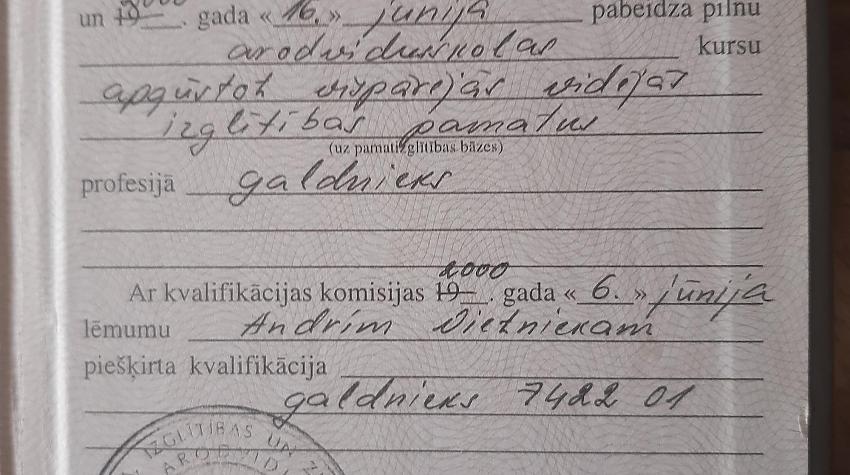 un 19 2000 . gada « 16. » jūnijā pabeidza pilnu
arodvidusskolas kursu
apgūstot vispārējās vidējās
izglītības pamatus
(uz pamatizglītības bāzes)
profesijā galdnieks
Ar kvalifikācijas komisijas 19 2000 . gada « 6. » jūnija
lēmumu Andrim Vietniekam
piešķirta kvalifikācija
galdnieks 7422 01
IZGLĪTĪBAS UN
ARODVID